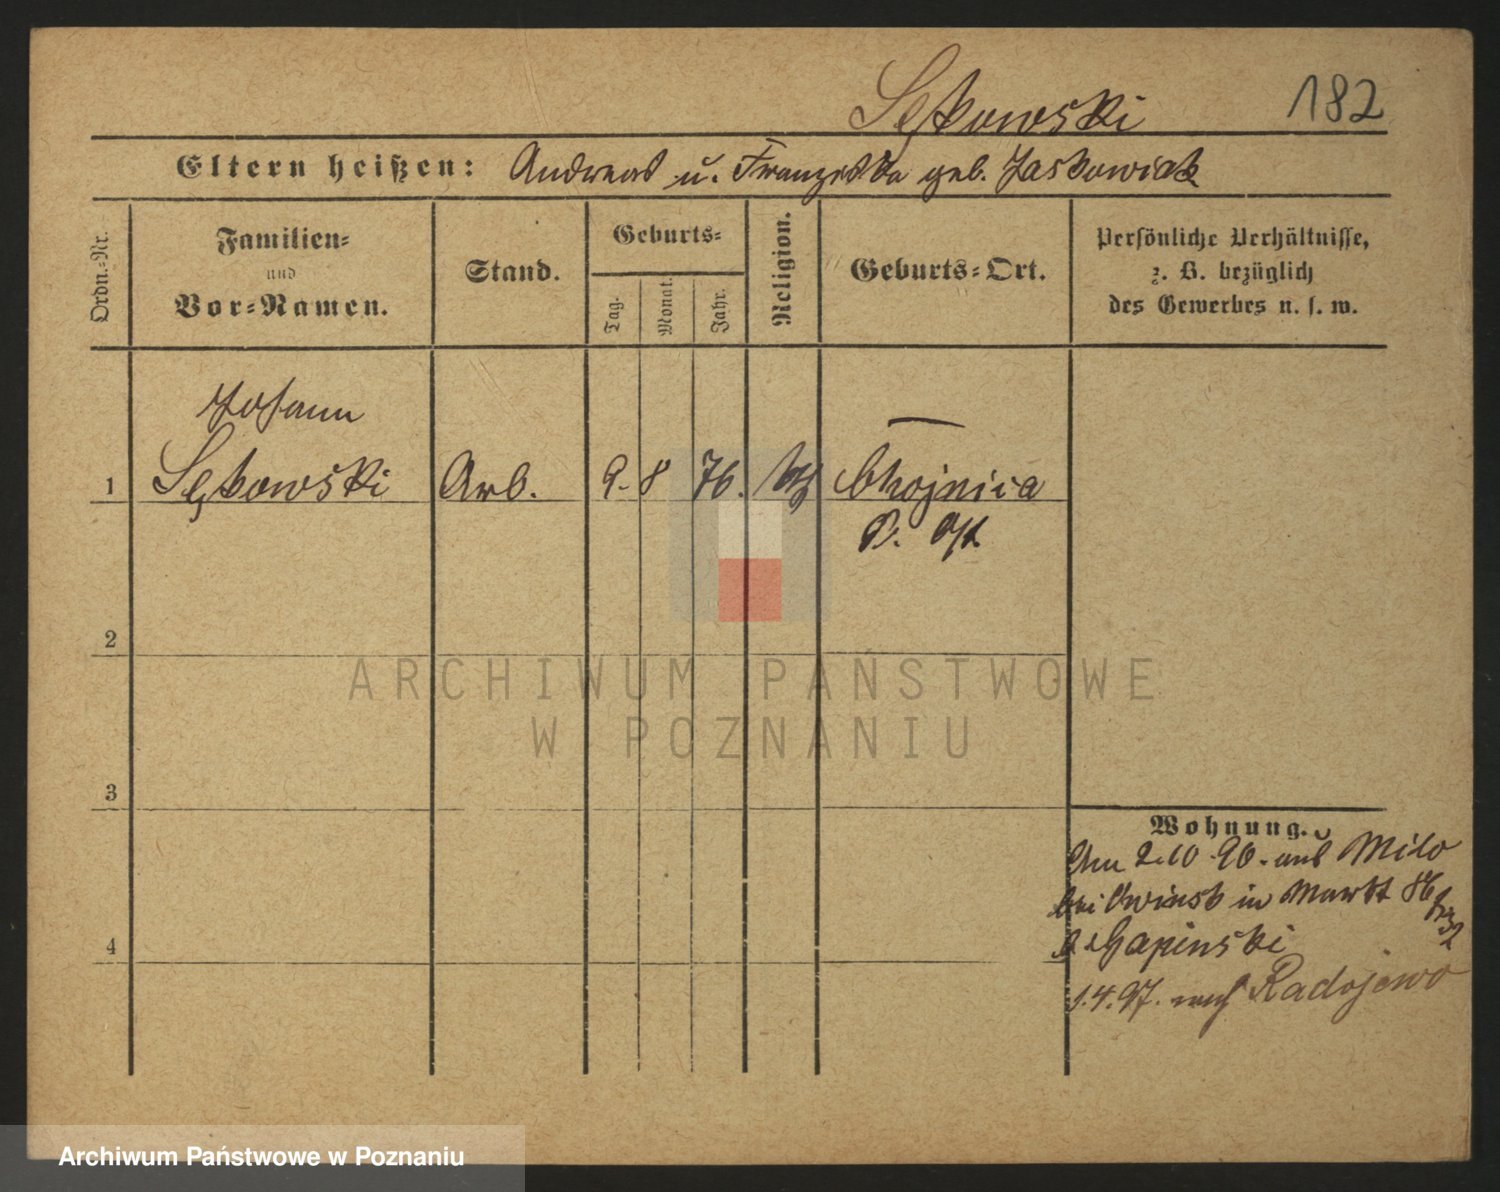 182
Sękowski
Eltern heißen: Andreas u. Franziska geb. Jaskowiak
Ordn.-Nr.
Familien-
und
Vor-Namen.
Stand.
Geburts-
Tag.
Monat.
Jahr.
Religion.
Geburts-Ort.
Persönliche Verhältnisse,
z. B. bezüglich
des Gewerbes u. s. w.
Johann
1 Sękowski Arb. 9. 8 76. Chojnica
P. Ost
2
3
4
Wohnung.
Am 2.10.96. aus
bei Owinsk in Markt 86
Gapinski
1.4.97. nach Radojewo
ARCHIWUM PAŃSTWOWE
W POZNANIU
Archiwum Państwowe w Poznaniu